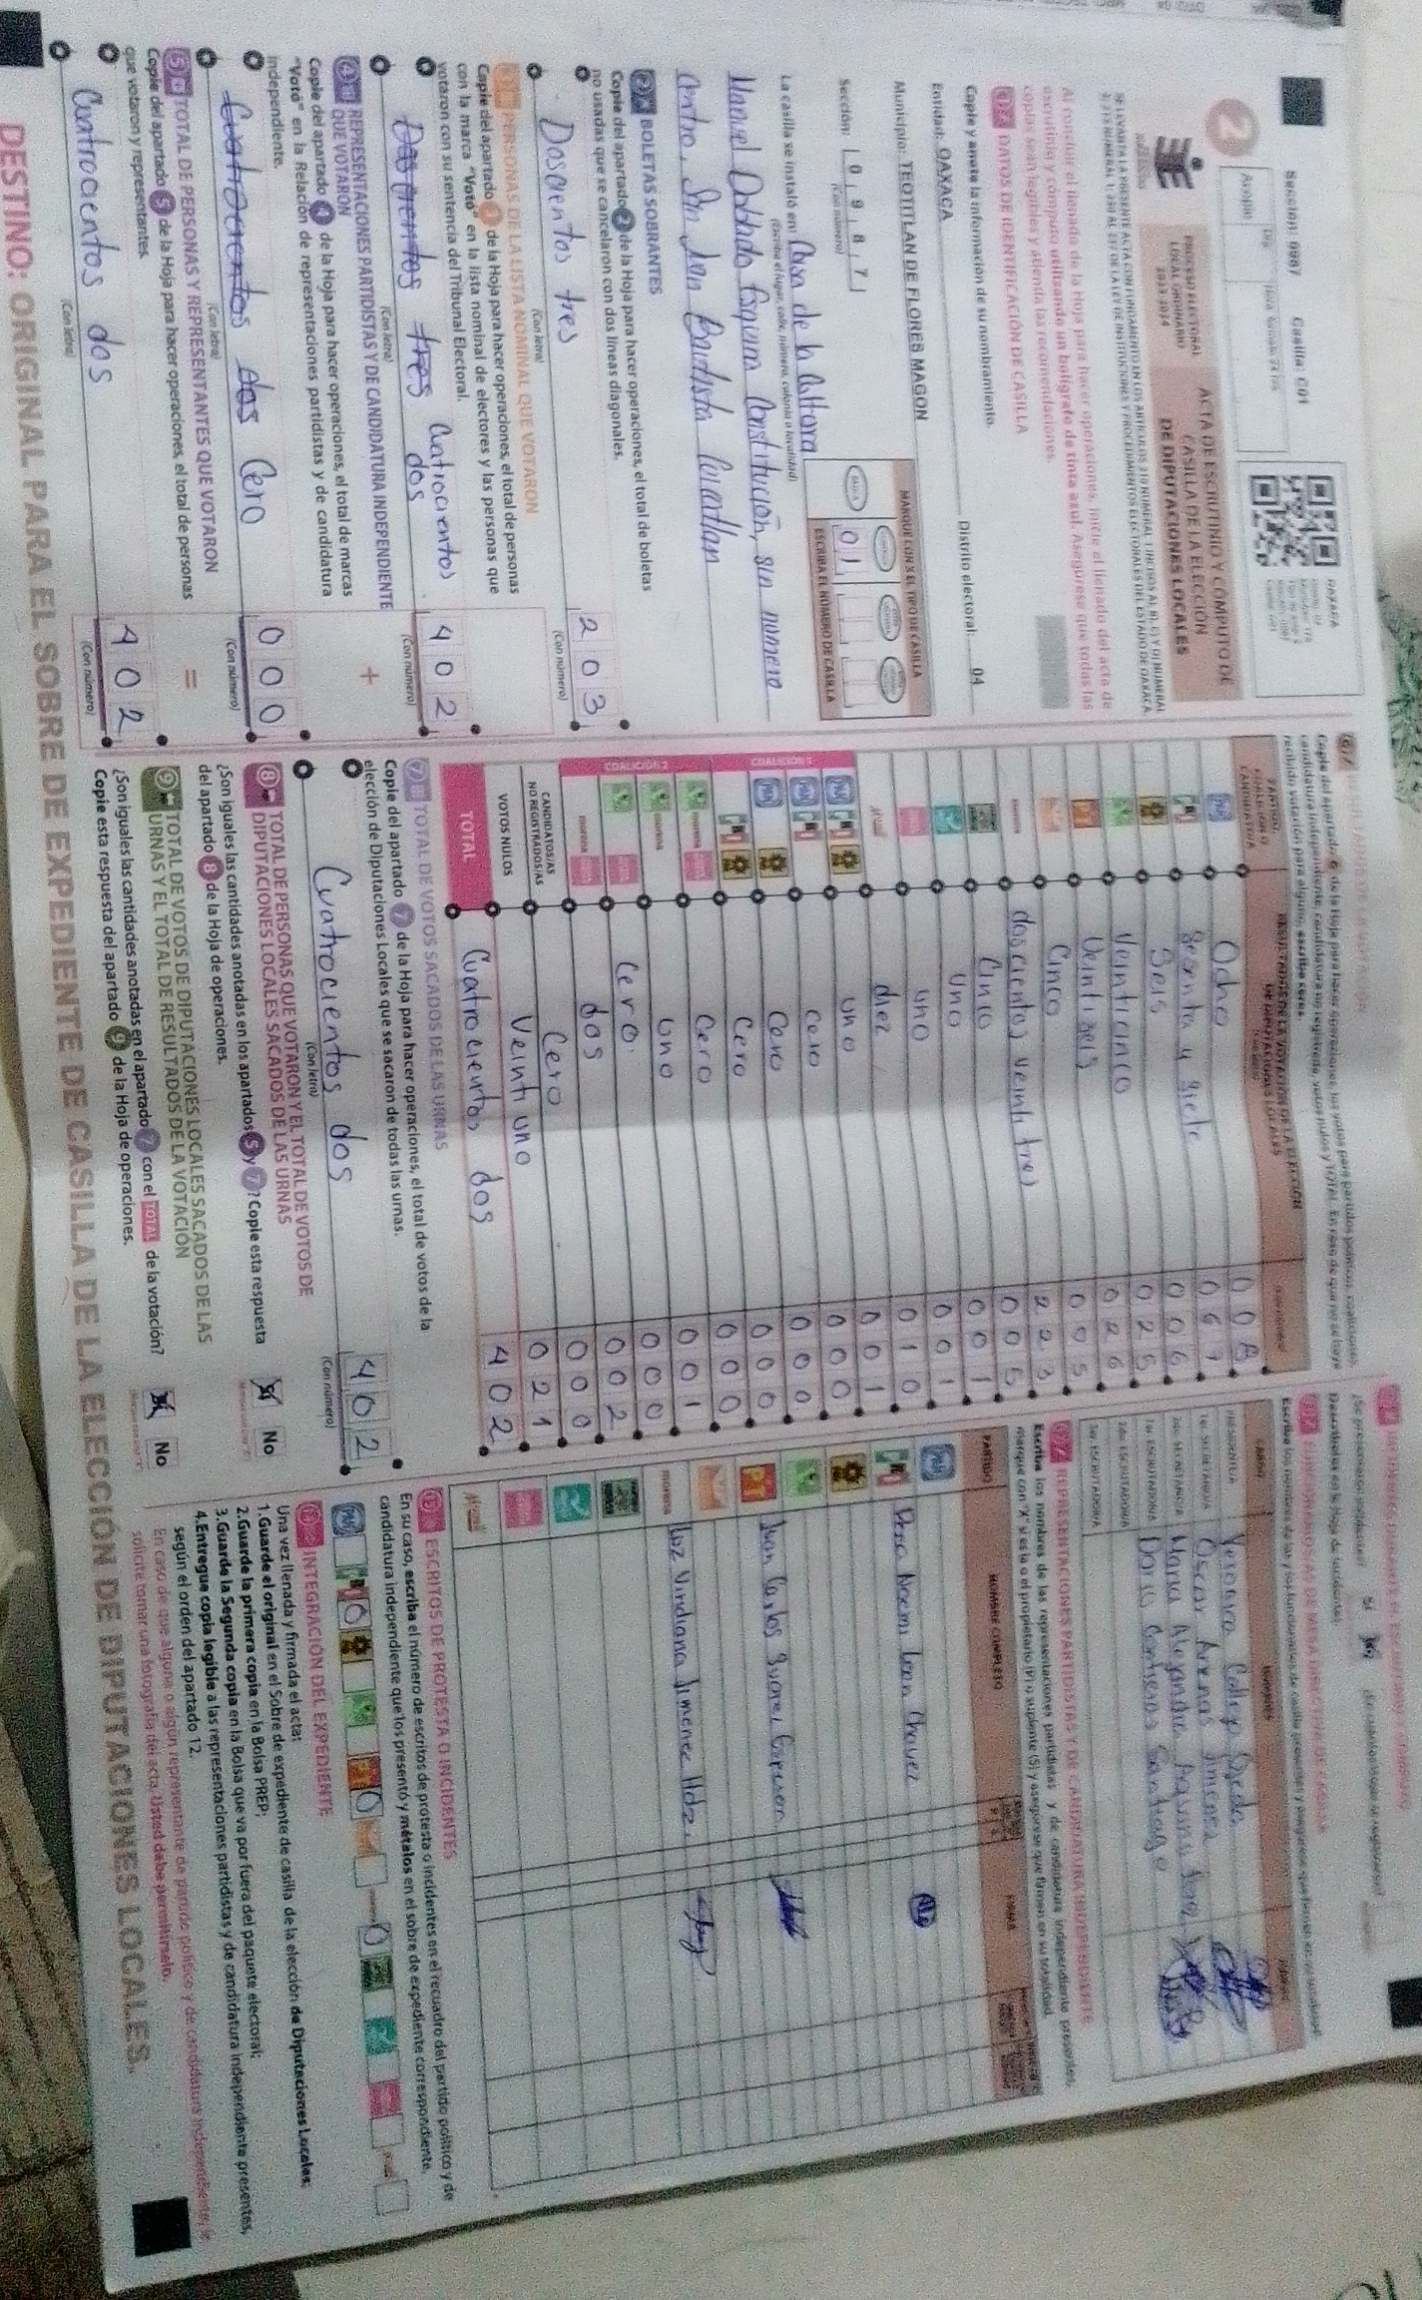 Sección: 0987 Casilla: C01
OAXACA
2
Acopio
PROCESO ELECTORAL
LOCAL ORDINARIO
2023-2024
ACTA DE ESCRUTINIO Y CÓMPUTO DE
CASILLA DE LA ELECCIÓN
DE DIPUTACIONES LOCALES
Al concluir el llenado de la Hoja para hacer operaciones, inicie el llenado del acta de
escrutinio y cómputo utilizando un bolígrafo de tinta azul. Asegúrese que todas las
copias sean legibles y atienda las recomendaciones.
1 DATOS DE IDENTIFICACIÓN DE CASILLA
Copie y anote la información de su nombramiento.
Entidad: OAXACA Distrito electoral: 04
Municipio: TEOTITLAN DE FLORES MAGON
Sección: 0 9 8 7
(Con número)
MARQUE CON X EL TIPO DE CASILLA
0 1
ESCRIBA EL NÚMERO DE CASILLA
La casilla se instaló en: Casa de la Cultura
(Escriba el lugar, calle, número, colonia o localidad)
Manuel Doblado Esquina Constitución, sin numero
Centro, San Juan Bautista Cuicatlan
2 BOLETAS SOBRANTES
Copie del apartado 2 de la Hoja para hacer operaciones, el total de boletas
no usadas que se cancelaron con dos líneas diagonales.
Doscientos tres
(Con letra)
2 0 3
(Con número)
3 PERSONAS DE LA LISTA NOMINAL QUE VOTARON
Copie del apartado 3 de la Hoja para hacer operaciones, el total de personas
con la marca "Votó" en la lista nominal de electores y las personas que
votaron con su sentencia del Tribunal Electoral.
Doscientos tres Cuatrocientos dos
(Con letra)
4 0 2
(Con número)
4 REPRESENTACIONES PARTIDISTAS Y DE CANDIDATURA INDEPENDIENTE
QUE VOTARON
+
Copie del apartado 4 de la Hoja para hacer operaciones, el total de marcas
"Votó" en la Relación de representaciones partidistas y de candidatura
independiente.
Cuatrocientos dos Cero
(Con letra)
0 0 0
(Con número)
5 TOTAL DE PERSONAS Y REPRESENTANTES QUE VOTARON
=
Copie del apartado 5 de la Hoja para hacer operaciones, el total de personas
que votaron y representantes.
Cuatrocientos dos
(Con letra)
4 0 2
(Con número)
6
Copie del apartado 6 de la Hoja para hacer operaciones, los votos para partidos políticos, coaliciones,
candidatura independiente, candidatura no registrada, votos nulos y TOTAL. En caso de que no se haya
recibido votación para alguno, escriba ceros.
PARTIDO,
COALICIÓN O
CANDIDATURA
RESULTADOS DE LA VOTACIÓN DE LA ELECCIÓN
DE DIPUTACIONES LOCALES
Ocho 0 0 8
Sesenta y siete 0 6 7
Seis 0 0 6
Veinticinco 0 2 5
Veintiseis 0 2 6
Cinco 0 0 5
doscientos veintitres 2 2 3
Cinco 0 0 5
Uno 0 0 1
uno 0 0 1
diez 0 1 0
uno 0 0 1
COALICIÓN 1
cero 0 0 0
Cero 0 0 0
Cero 0 0 0
Cero 0 0 0
COALICIÓN 2
uno 0 0 1
Cero 0 0 0
dos 0 0 2
Cero 0 0 0
CANDIDATOS/AS
NO REGISTRADOS/AS
VOTOS NULOS Veinti uno 0 2 1
TOTAL Cuatrocientos dos 4 0 2
7 TOTAL DE VOTOS SACADOS DE LAS URNAS
Copie del apartado 7 de la Hoja para hacer operaciones, el total de votos de la
elección de Diputaciones Locales que se sacaron de todas las urnas.
Cuatrocientos dos
(Con letra)
4 0 2
(Con número)
8 TOTAL DE PERSONAS QUE VOTARON Y EL TOTAL DE VOTOS DE
DIPUTACIONES LOCALES SACADOS DE LAS URNAS
¿Son iguales las cantidades anotadas en los apartados 5 y 7? Copie esta respuesta
del apartado 8 de la Hoja de operaciones.
No
9 TOTAL DE VOTOS DE DIPUTACIONES LOCALES SACADOS DE LAS
URNAS Y EL TOTAL DE RESULTADOS DE LA VOTACIÓN
¿Son iguales las cantidades anotadas en el apartado 7 con el TOTAL de la votación?
Copie esta respuesta del apartado 9 de la Hoja de operaciones.
No
NOMBRES
PRESIDENTE/A
Oscar Arenas
Doris Contreras Santiago
REPRESENTACIONES PARTIDISTAS Y DE CANDIDATURA INDEPENDIENTE
Escriba los nombres de las representaciones partidistas y de candidatura independiente presentes,
marque con "X" si es la o el propietario (P) o suplente (S) y asegúrese que firmen en su totalidad.
PARTIDO
NOMBRE COMPLETO
FIRMA
PAN
PRI Noemi Leon Chavez
PT Juan Carlos Suarez
morena Luz Viridiana Jimenez Hdz.
ESCRITOS DE PROTESTA O INCIDENTES
En su caso, escriba el número de escritos de protesta o incidentes en el recuadro del partido político y de
candidatura independiente que los presentó y métalos en el sobre de expediente correspondiente.
INTEGRACIÓN DEL EXPEDIENTE
Una vez llenada y firmada el acta:
1.Guarde el original en el Sobre de expediente de casilla de la elección de Diputaciones Locales;
2.Guarde la primera copia en la Bolsa PREP;
3.Guarde la Segunda copia en la Bolsa que va por fuera del paquete electoral;
4.Entregue copia legible a las representaciones partidistas y de candidatura independiente presentes,
según el orden del apartado 12.
En caso de que alguna o algún representante de partido político y de candidatura independiente, le
solicite tomar una fotografía del acta, Usted debe permitírselo.
DESTINO: ORIGINAL PARA EL SOBRE DE EXPEDIENTE DE CASILLA DE LA ELECCIÓN DE DIPUTACIONES LOCALES.